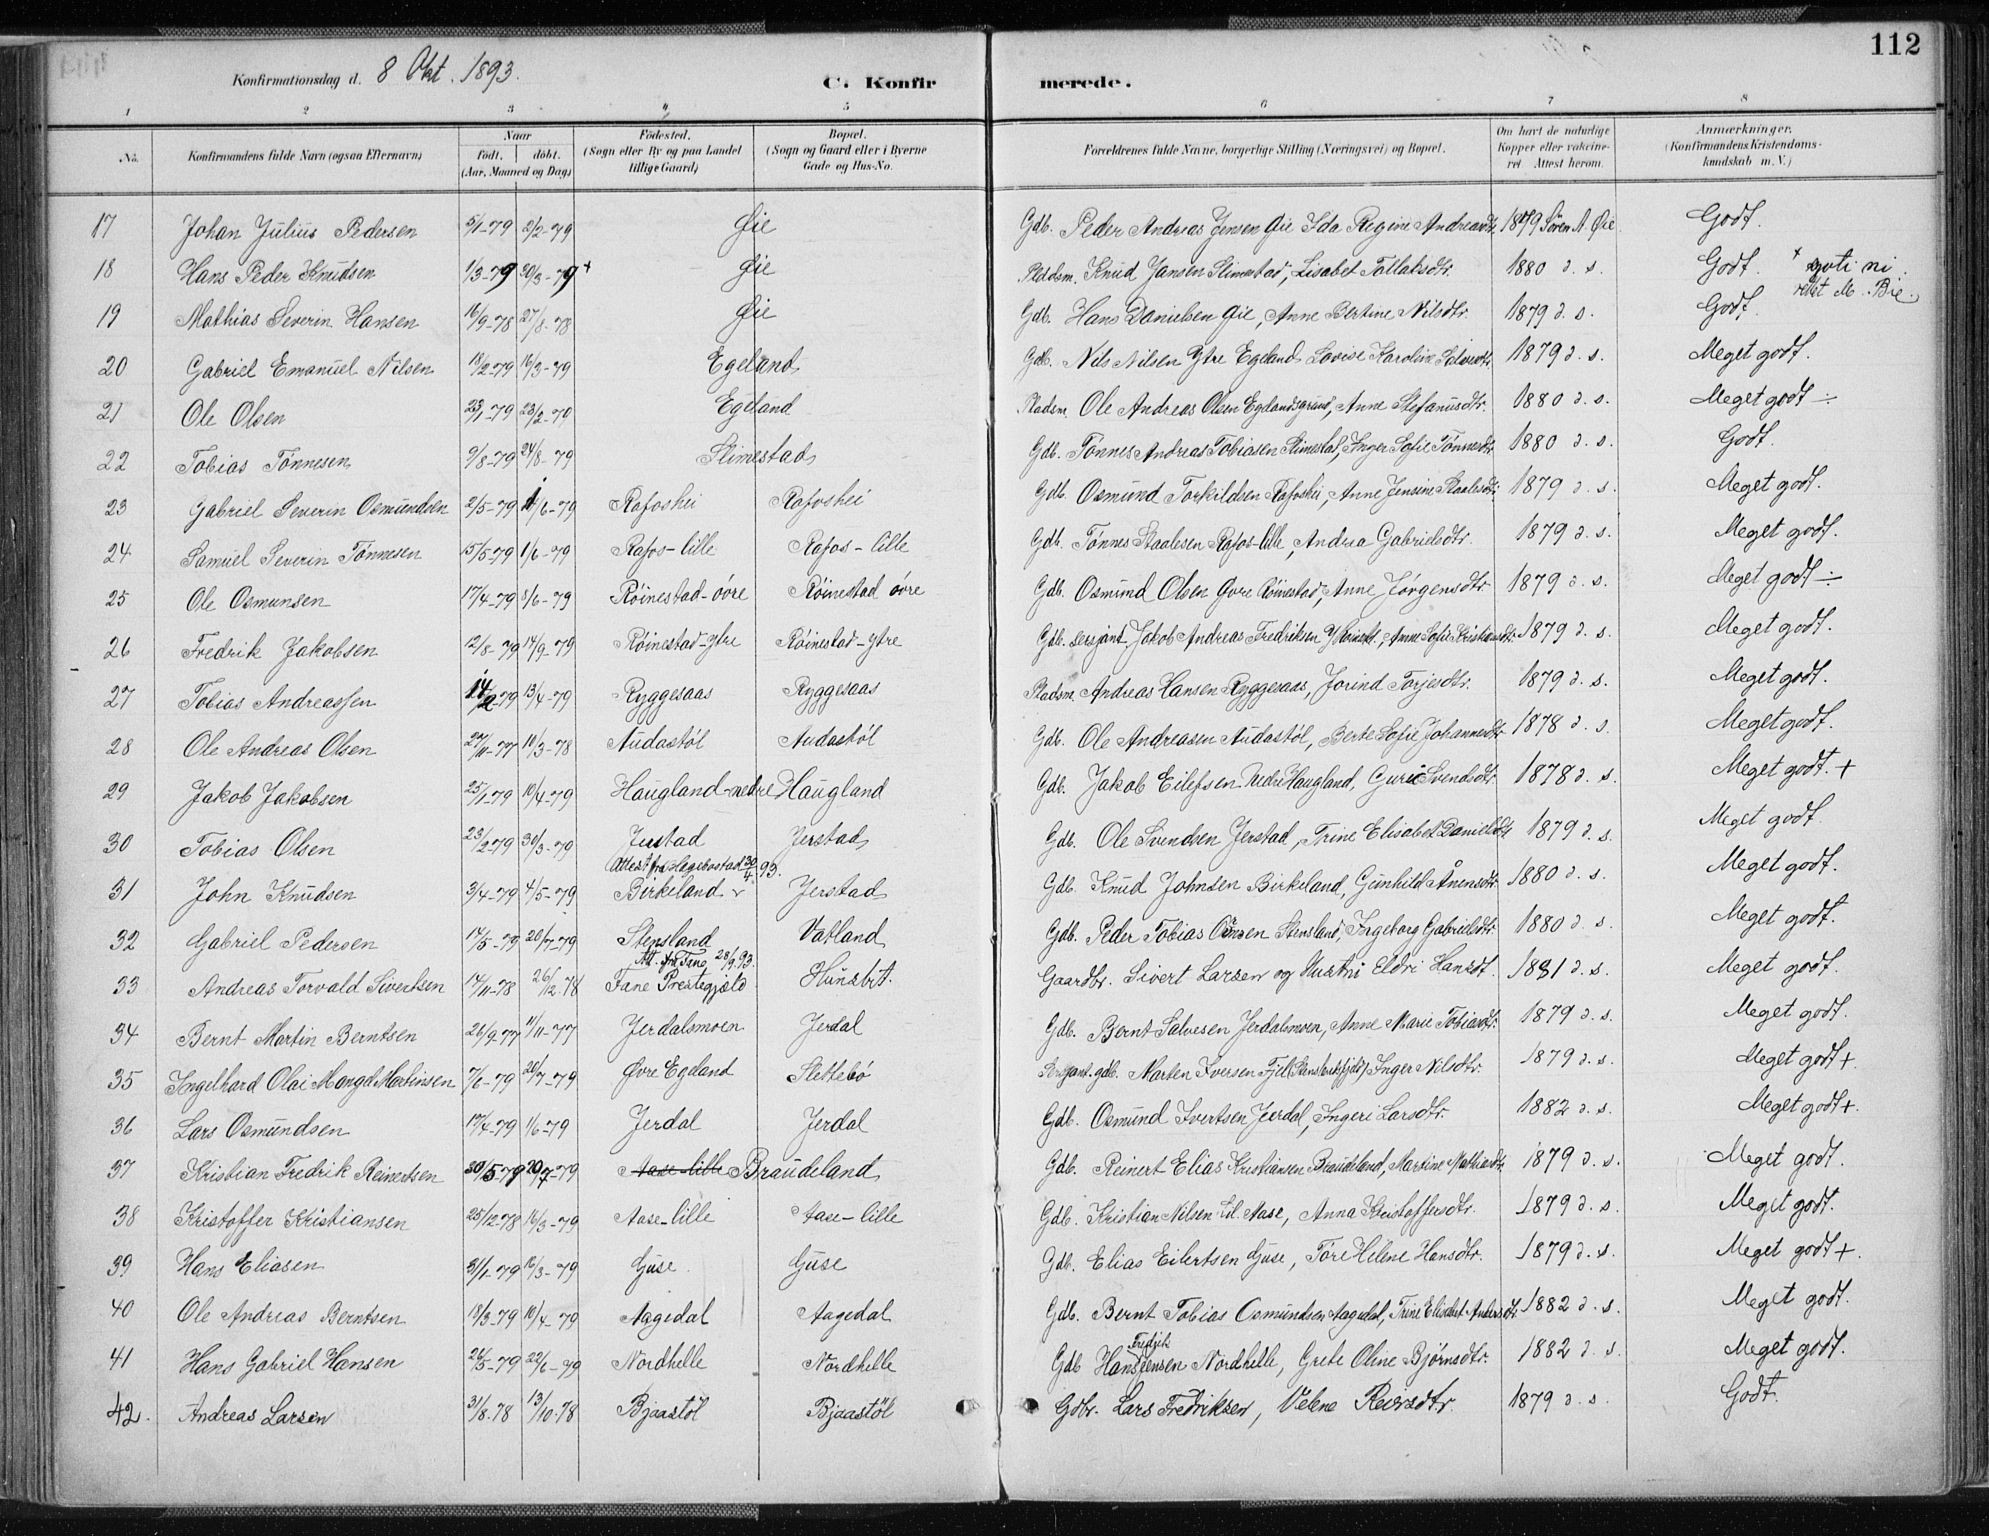 112
Konfirmationsdag d. 8 Okt. 1893.
C. Konfirmerede.
1 2 3 4 5 6 7 8
No. Konfirmandens fulde Navn (ogsaa Efternavn) Naar født. døbt. (Aar, Maaned og Dag) Fødested. (Sogn eller By og paa Landet tillige Gaard) Bopæl. (Sogn og Gaard eller i Byerne Gade og Hus-No. Forældrenes fulde Navne, borgerlige Stilling (Næringsvei) og Bopæl. Om havt de naturlige Kopper eller vakcineret Attest herom. Anmærkninger. (Konfirmandens Kristendomskundskab m. V.)
17 Johan Julius Pedersen 5/1-79 2/2-79 Øie Gdb. Peder Andreas Jensen Øie Ida Regine Andreasdtr. 1879 Søren A. Øie Godt.
18 Hans Peder Knudsen 1/3-79 30/3-79+ Øie Knud Jansen Slimestad, Lisabet Tallaksdtr. 1880 d. s. Godt. +
19 Mathias Severin Hansen 16/9-78 27/8-78 Øie Gdb. Hans Danielsen Øie, Anne Bertine Nilsdtr. 1879 d. s. Godt.
20 Gabriel Emanuel Nilsen 18/2-79 16/3-79 Egeland Gdb. Nils Nilsen Ytre Egeland Lovise Karoline 1879 d. s. Meget godt.
21 Ole Olsen 23/1-79 23/2-79 Egeland Pladsm. Ole Andreas Olsen Egelandsgrund, Anne Stefanusdtr. 1880 d. s. Meget godt ÷
22 Tobias Tönnesen 9/8-79 24/8-79 Slimestad Gdb. Tönnes Andreas Tobiasen Slimestad, Inger Sofie Tönnesdtr. 1880 d. s. Godt.
23 Gabriel Severin Osmundsen 2/5-79 /6-79 Rafoshei Rafoshei Gdb. Osmund Torkildsen Rafoshei, Anne Jensine Staalesdtr. 1879 d. s. Meget godt.
24 Samuel Severin Tönnesen 15/5-79 1/6-79 Rafos-lille Rafos-lille Gdb. Tönnes Staalesen Rafos-lille, Andrea Gabrielsdtr. 1879 d. s. Meget godt.
25 Ole Osmunsen 17/4-79 8/6-79 Röinestad-övre Röinestad övre Gdb. Osmund Olsen Øvre Röinestad, Anne Jörgensdtr. 1879 d. s. Meget godt ÷
26 Fredrik Jakobsen 12/8-79 14/9-79 Röinestad-ytre Röinestad-ytre Gdb. sersjant Jakob Andreas Fredriksen Y Röinest., Anne Sofie Kristiansdtr. 1879 d. s. Meget godt.
27 Tobias Andreassen 14/2-79 13/4-79 Ryggesaas Ryggesaas Pladsm. Andreas Hansen Ryggesaas, Jorind Torjesdtr. 1879 d. s. Meget godt.
28 Ole Andreas Olsen 27/11-77 10/3-78 Audastöl Audastöl Gdb. Ole Andreasen Audastöl, Berte Sofie Johannesdtr. 1878 d. s. Meget godt.
29 Jakob Jakobsen 25/1-79 10/4-79 Haugland-nedre Haugland Gdb. Jakob Eilefsen Nedre Haugland, Guri Svendsdtr. 1878 d. s. Meget godt. +
30 Tobias Olsen 23/2-79 30/3-79 Jerstad Jerstad Gdb. Ole Svendsen Jerstad, Trine Elisabet Danielsdtr. 1879 d. s. Meget godt.
Attest fra Hægebostad 30/4.93.
31 John Knudsen 3/4-79 4/5-79 Birkeland Jerstad Gdb. Knud Johnsen Birkeland, Gunhild Ånensdtr. 1880 d. s. Meget godt.
32 Gabriel Pedersen 17/5-79 20/7-79 Stensland Vatland Gdb. Peder Tobias Stensland, Ingeborg Gabrielsdtr. 1880 d. s. Meget godt.
Att. fra Fane 28/9.93.
33 Andreas Torvald Sivertsen 17/11-78 26/12-78 Fane Prestegjeld Hunsbt. Gaardbr. Sivert Larsen og Hustru Eldri Hansdt. 1881 d. s. Meget godt.
34 Bernt Martin Berntsen 26/9-77 11/11-77 Jerdalsmoen Jerdal Gdb. Bernt Salvesen Jerdalsmoen, Anne Marie Tobiasdtr. 1879 d. s. Meget godt.
35 Ingelhard Olai Mangel Martinsen 7/6-79 20/7-79 Øvre Egeland Slettebö Sersjant. gdb. Marten Iversen Fjel Inger Nilsdtr. 1879 d. s. Meget godt +
36 Lars Osmundsen 17/4-79 1/6-79 Jerdal Jerdal Gdb. Osmund Ivertsen Jerdal, Ingeri Larsdtr. 1882 d. s. Meget godt +.
37 Kristian Fredrik Reinertsen 30/5-79 20/7-79 Aase-lille Braudeland Gdb. Reinert Elias Kristiansen Braudeland, Martine Mathiasdtr. 1879 d. s. Meget godt.
38 Kristoffer Kristiansen 25/12-78 16/3-79 Aase-lille Aase-lille Gdb. Kristian Nilsen Lil. Aase, Anna Kristoffersdtr. 1879 d. s. Meget godt.
39 Hans Eliasen 31/1-79 16/3-79 Guse Guse Gdb. Elias Eilertsen Guse, Tore Helene Hansdtr. 1879 d. s. Meget godt +.
40 Ole Andreas Berntsen 18/3-79 10/4-79 Aagedal Aagedal Gdb. Bernt Tobias Osmundsen Aagedal, Trine Elisabet Andersdtr. 1882 d. s. Meget godt.
41 Hans Gabriel Hansen 21/5-79 22/6-79 Nordhelle Nordhelle Gdb Hans Fredrik Jensen Nordhelle, Grete Oline Björnsdtr. 1882 d. s. Meget godt.
42. Andreas Larsen 31/8.78 13/10.78 Bjaastöl Bjaastöl Gdbr. Lars Fredriksen, Velene Reiersdtr. 1879 d. s. Godt.